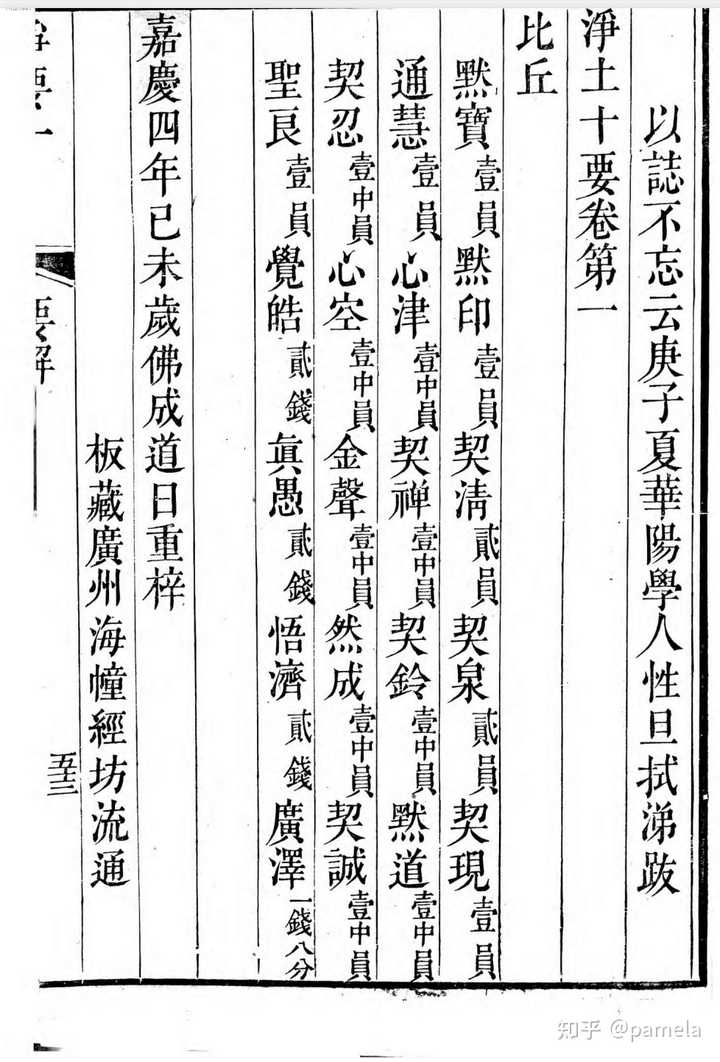 以誌不忘云庚子夏華陽學人性旦拭涕跋
淨土十要卷第一
比丘
默寶壹員默印壹員契淸貳員契泉貳員契現壹員
通慧壹員心津壹中員契禪壹中員契鈴壹中員默道壹中員
契忍壹中員心空壹中員金聲壹中員然成壹中員契誠壹中員
聖良壹員覺皓貳錢眞愚貳錢悟濟貳錢廣澤一錢八分
嘉慶四年已未歲佛成道日重梓
板藏廣州海幢經坊流通
要一
要解
五十三
知乎 @pamela